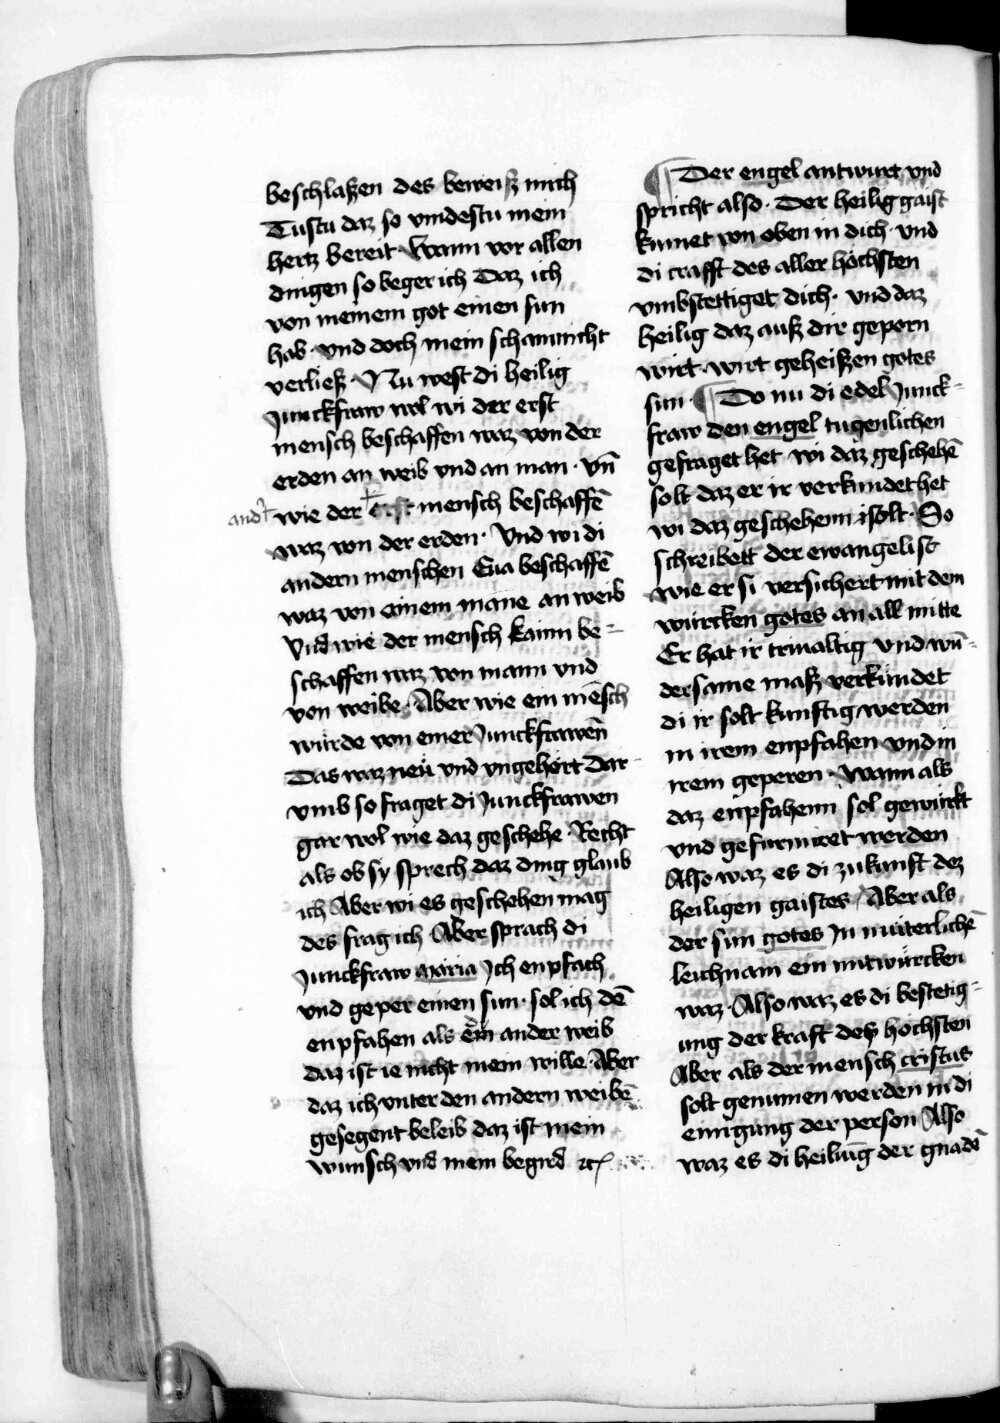 beschlaßen des beweiß mich
Tustu daz so vindestu mein
hertz bereit Wann vor allen
dingen so beger ich Daz ich
von meinem got einen sun
hab · vnd doch mein scham nicht
verließ · Nu west di heilig
Junckfraw wol wi der erst
mensch beschaffen waz von der
erden an weib vnd an man · Vn̄
and᷑
wie der erst mensch beschaffē
waz von der erden · Vnd wi di
andern menschen Eua beschaffē
waz von einem mane an weib
Vnd wie der mensch kaim be⸗
schaffen waz von mann vnd
von weibe · Aber wie ein mēsch
würde von einer Junckfrawēn
Das waz neü vnd vngehört Dar
vmb so fraget di Junckfrawen
gar wol wie daz geschehe Recht
als ob sy sprech daz ding glaub
ich Aber wi es geschehen mag
des frag ich Aber sprach di
Junckfraw maria Ich enpfach
vnd geper einen sun · sol ich dē
enpfahen als ein ander weib
daz ist ie nicht mein wille · Aber
daz ich vnter den andern weibē
gesegent beleib daz ist mein
wunsch vnd mein begird ꝛc
¶ Der engel antwurt vnd
spricht also · Der heilig gaist
kumet von oben in dich · vnd
di crafft des aller höchsten
vmbstettiget dich · vnd daz
heilig daz auß dir geporn
wirt · wirt geheißen gotes
sun · ¶ Do nu di edel Junck⸗
fraw den engel tugenlichen
gefraget het wi daz geschehē
solt daz er ir verkundet het
wi daz geschehenn solt · So
schreibett der ewangelist
wie er si versichert mit dem
würcken gotes an all mitte
Er hat ir triualtig vnd wū⸗
dersame maß verkündet
di ir solt kunftig werden
in irem enpfahen vnd in
irem geperen · Wann als
daz enpfahenn sol gewürkt
vnd gefurmiret werden
Also waz es di zukunft dez
heiligen gaistes Aber als
der sun gotes In müterlichē
leichnam ein mitwürcken
waz · Also waz es di bestetig⸗
ung der kraft deß höchsten
Aber als der mensch cristus
solt genumen werden in di
einigung der person Also
waz es di heilūg der gnadē